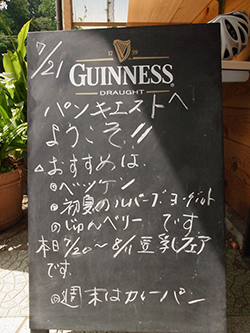 7/21
17 59
GUINNESS
DRAUGHT
パンキエストへ
ようこそ!!
△おすすめは.
◎ベツケン
◎初夏のルバーブヨーグルト
◎じゅんベリー です
本日7/20〜8/1豆乳フェア
です.
◎週末はカレーパン